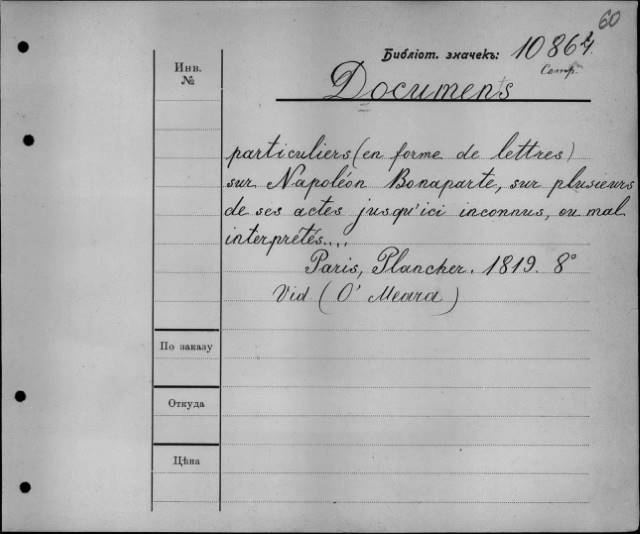 60
Библіот. значекъ: 1086
Инв.
№
Documents
particuliers (en forme de lettres)
sur Napoléon Bonaparte, sur plusieurs
de ses actes jusqu'ici inconnus, ou mal
interprétés....
Paris, Plancher. 1819. 8°
Vid (O'Meara)
По заказу
Откуда
Цѣна